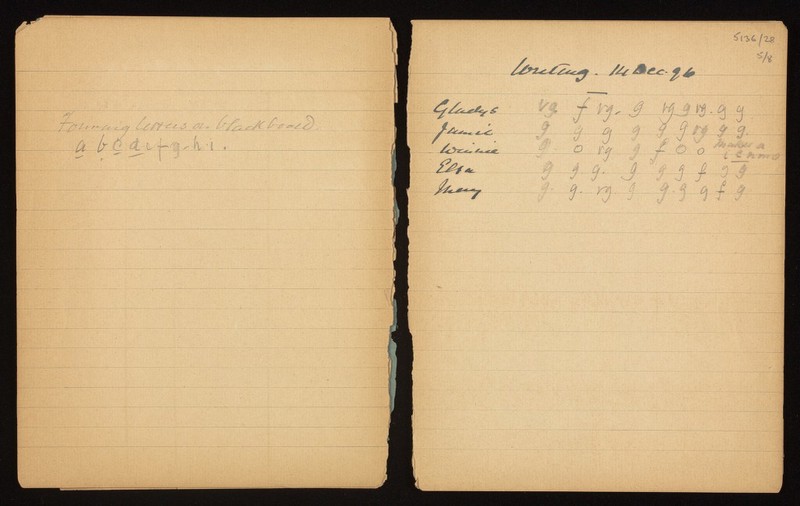 Forming letters on blackboard.
a b c d e f g h i.
5136/28
5/8
Writing. 14 Dec. 96
Gladys vg f vg. g vg g vg. g g
Jamie g g g g g g vg g g.
Winnie g o vg g f o o makes a
Elsa g g g. g g g f g g
Mary g. g. vg g g. g g f g